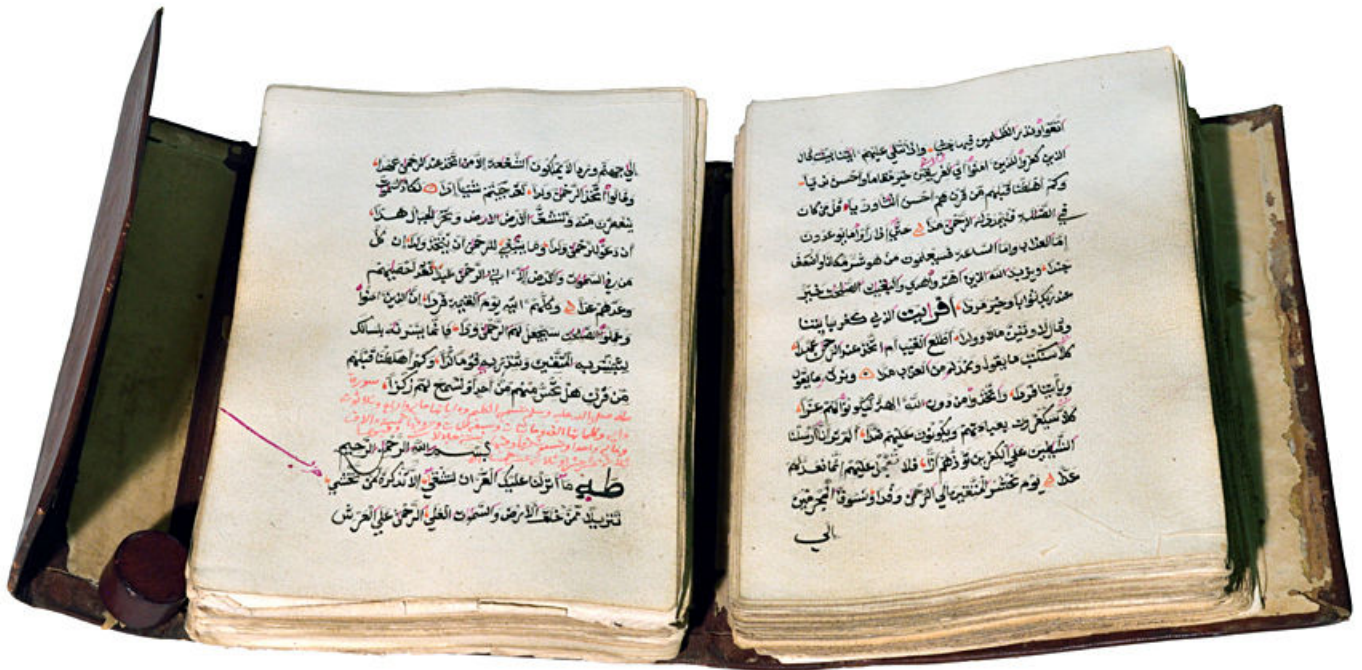 اتقوا ونذر الظلمين فيها جثيا واذا تتلى عليهم ءايتنا بينت قال
الذين كفروا للذين ءامنوا أي الفريقين خير مقاما واحسن نديا
وكم اهلكنا قبلهم من قرن هم احسن اثثا وريا قل من كان
في الضللة فليمدد له الرحمن مدا حتى إذا راوا ما يوعدون
إما العذاب وإما الساعة فسيعلمون من هو شر مكانا واضعف
جندا ويزيد الله الذين اهتدوا هدى والبقيت الصلحت خير
عند ربك ثوابا وخير مردا افرايت الذي كفر بايتنا
وقال لاوتين مالا وولدا اطلع الغيب أم اتخذ عند الرحمن عهدا
كلا سنكتب ما يقول ونمد له من العذاب مدا ونرثه ما يقول
وياتينا فردا واتخذوا من دون الله ءالهة ليكونوا لهم عزا
كلا سيكفرون بعبادتهم ويكونون عليهم ضدا ألم تر أنا أرسلنا
الشيطين على الكفرين تؤزهم أزا فلا تعجل عليهم إنما نعد لهم
عدا يوم نحشر المتقين إلي الرحمن وفدا ونسوق المجرمين
الي
الي جهنم وردا لا يملكون الشفعة إلا من اتخذ عند الرحمن عهدا
وقالوا اتخذ الرحمن ولدا لقد جيتم شيئا إدا تكاد السموت
يتفطرن منه وتنشق الارض وتخر الجبال هدا
أن دعوا للرحمن ولدا وما ينبغي للرحمن أن يتخذ ولدا إن كل
من في السموت والارض إلا ءاتي الرحمن عبدا لقد أحصيهم
وعدهم عدا وكلهم ءاتيه يوم القيمة فردا إن الذين ءامنوا
وعملوا الصلحت سيجعل لهم الرحمن ودا فإنما يسرنه بلسانك
لتبشر به المتقين وتنذر به قوما لدا وكم أهلكنا قبلهم
من قرن هل تحس منهم من أحد أو تسمع لهم ركزا سورة
بسم الله الرحمن الرحيم
طه ما أنزلنا عليك القرءان لتشقي إلا تذكرة لمن يخشي
تنزيلا ممن خلق الارض والسموت العلي الرحمن علي العرش